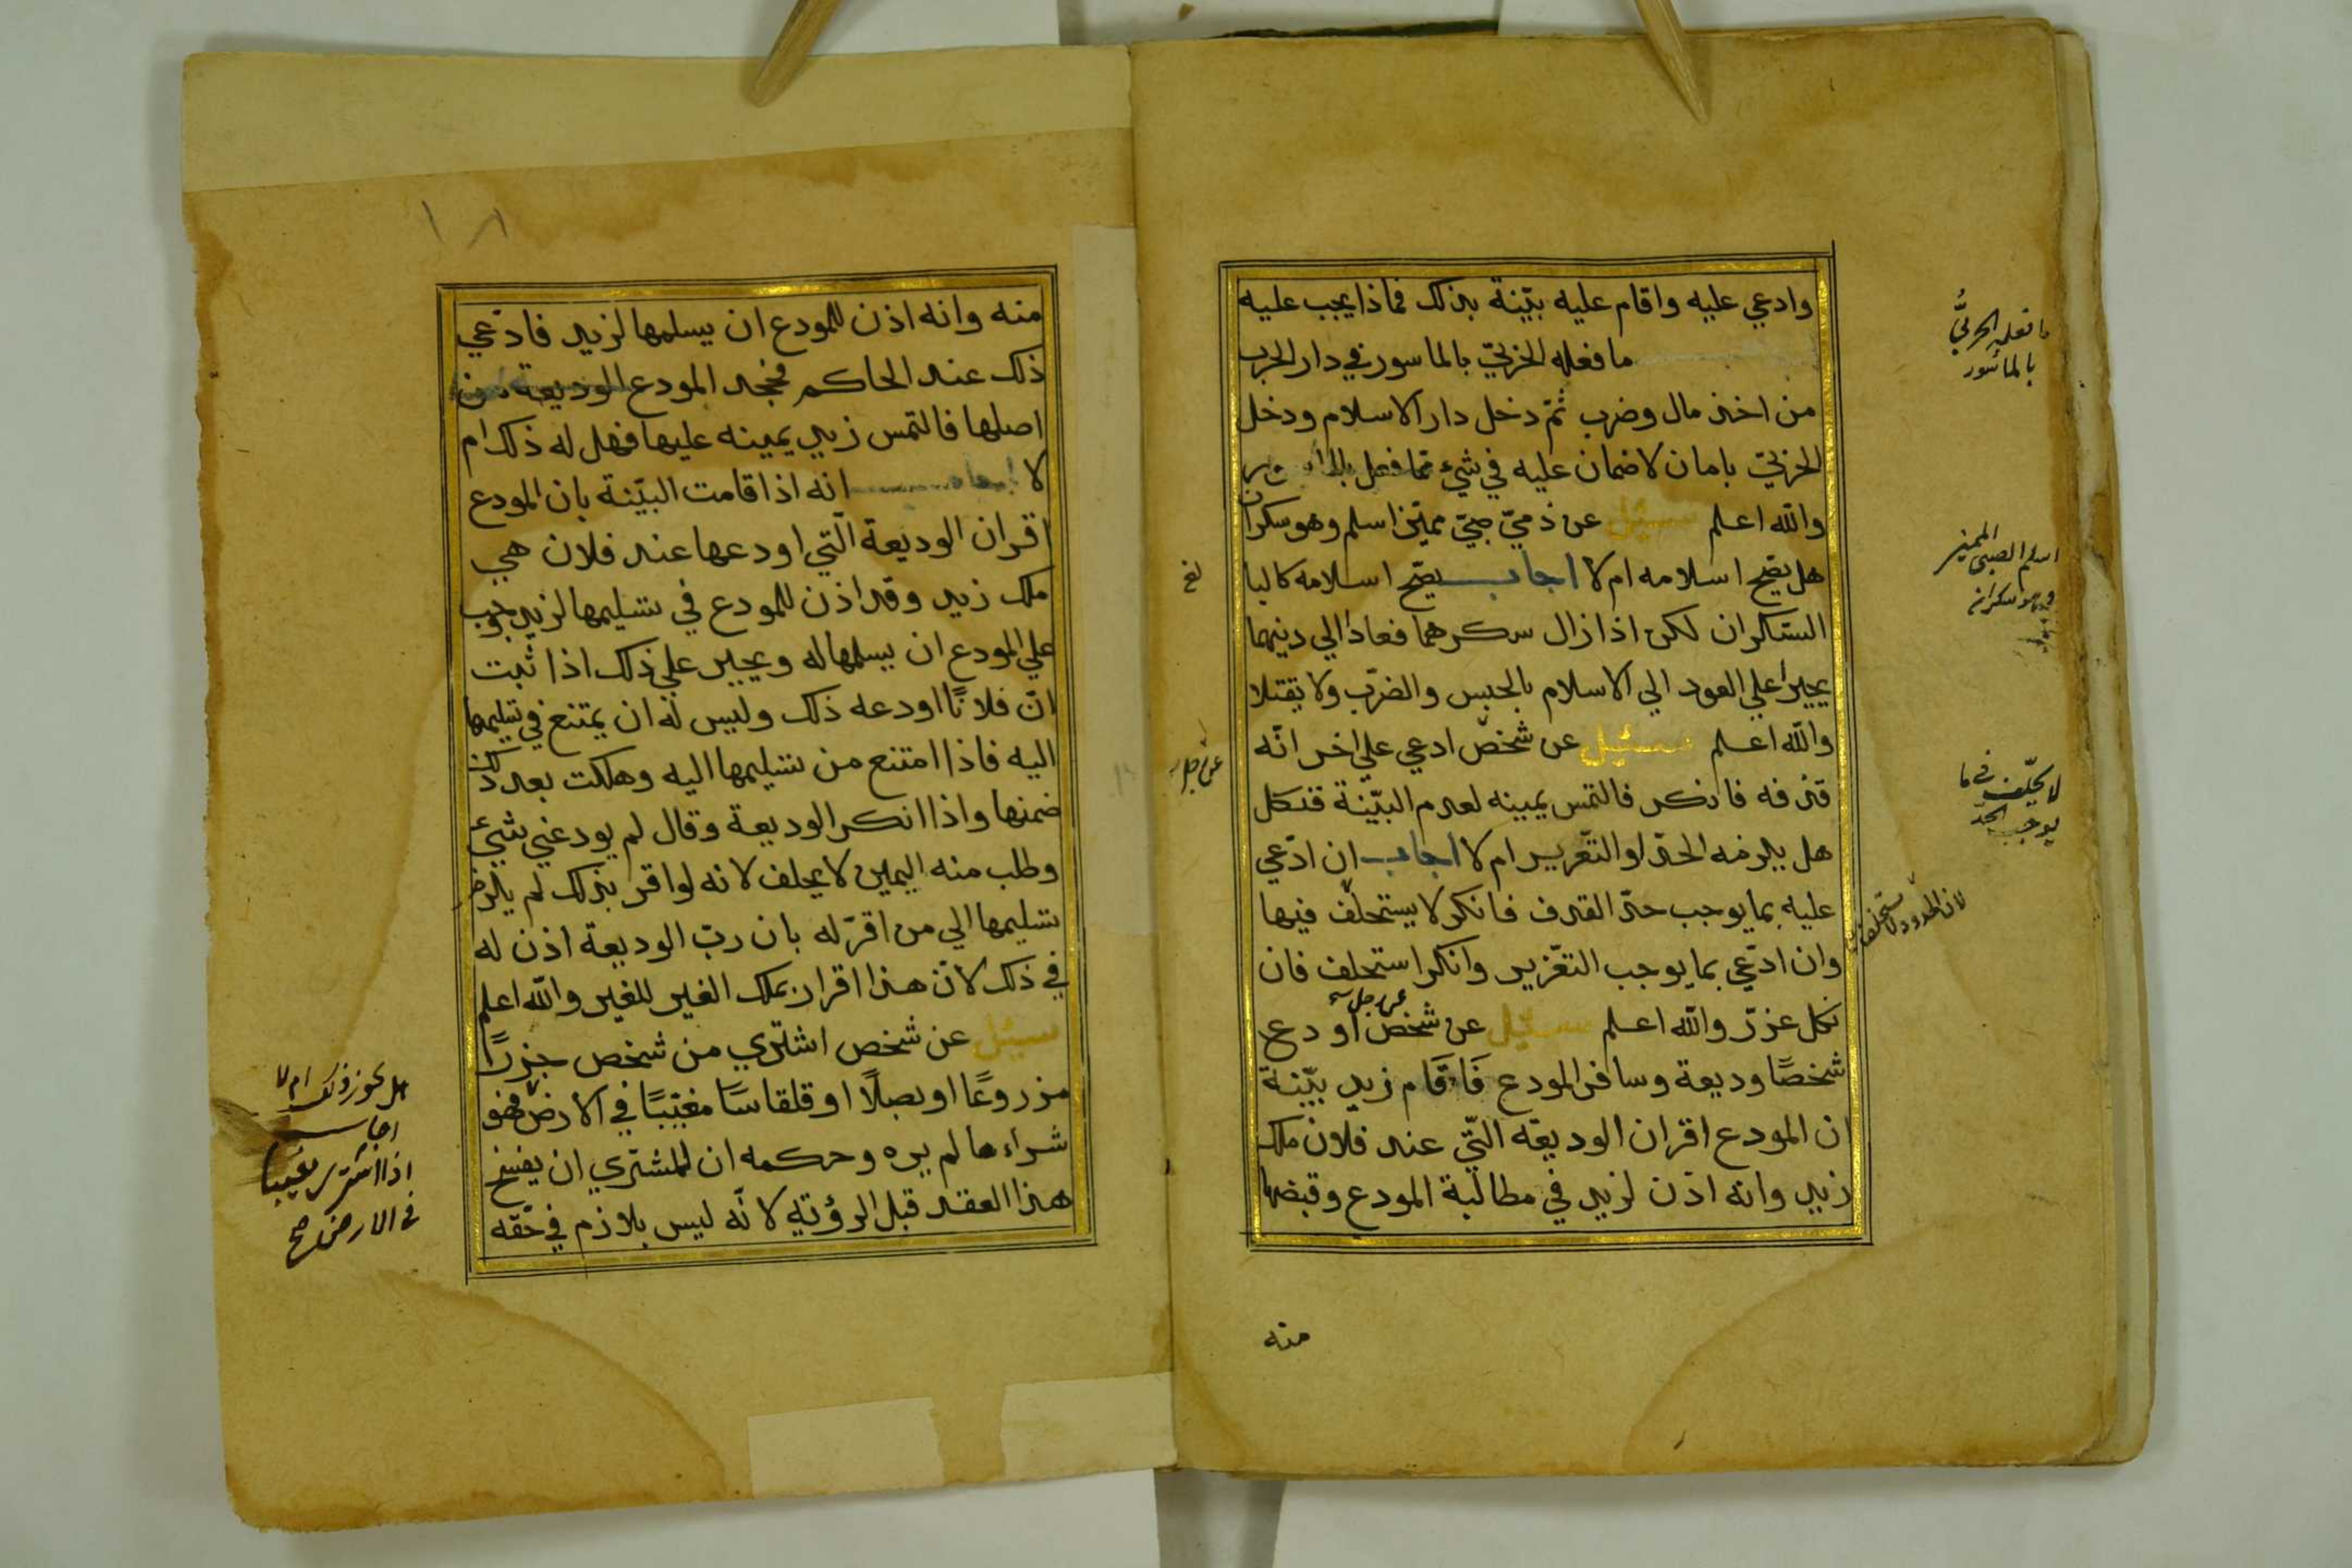 وادعي عليه واقام عليه بيّنة بذلك فماذا يجب عليه
ما فعله الحربيّ بالماسور في دار الحرب
من اخذ مال وضرب ثمّ دخل دار الاسلام ودخل
الحربيّ بامان لا ضمان عليه في شيء ممّا فعل
والله اعلم سئيل عن ذميّ صبيّ مميّز اسلم وهو سكران
هل يصّح اسلامه ام لا اجاب يصّح اسلامه كالبا
السّكران لكن اذا زال سكرهما فعادا الي دينهما
يجبرا علي العود الي الاسلام بالحبس والضرّب ولا يقتلا
والله اعلم سئيل عن شخص ادعي علي اخر انّه
قذفه فانكر فالتمس يمينه لعدم البيّنة فنكل
هل يلزمه الحدّ او التّعزير ام لا اجاب ان ادّعي
عليه بما يوجب حدّ القذف فانكر لا يستحلف فيها
وان ادّعي بما يوجب التعّزير وانكر استحلف فان
نكل عزرّ والله اعلم سئيل عن شخص اودع
شخصًا وديعة وسافر المودع فَاقَام زيد بيّنة
ان المودع اقر ان الوديعّه التّي عند فلان ملك
زيد وانه اذن لزيد في مطالبة المودع وقبضها
منه
ما فعله الحربيُّ
بالمأسور
اسلم الصبي المميز
وهو سكران
لا يحلّف في ما
يوجب الحدّ
لان الحدود لا يستحلف
منه وانه اذن للمودع ان يسلمها لزيد فادّعي
ذلك عند الحاكم فجحد المودع الوديعة من
اصلها فالتمس زيد يمينه عليها فهل له ذلك ام
لا اجاب انه اذا قامت البيّنة بان المودع
اقر ان الوديعة الّتي اودعها عند فلان هي
ملك زيد وقد اذن للمودع في تسليمها لزيد وجب
علي المودع ان يسلمها له ويجبر علي ذلك اذا ثبت
انّ فلانًا اودعه ذلك وليس له ان يمتنع في تسليمها
اليه فاذا امتنع من تسليمها اليه وهلكت بعد ذلك
ضمنها واذا انكر الوديعة وقال لم يودعني شيئ
وطلب منه اليمين لا يحلف لانه لو اقر بذلك لم يلزم
تسليمها الي من اقرّ له بان ربّ الوديعة اذن له
في ذلك لانّ هذا اقرار بملك الغير للغير والله اعلم
سيئل عن شخص اشتري من شخص جزرًا
مزروعًا او بصلًا او قلقاسًا مغيّبًا في الارض فهو
شراء ما لم يره وحكمه ان للمشتري ان يفسخ
هذا العقد قبل الرؤيته لانّه ليس بلازم في حّقه
هل يجوز ذلك ام لا
اجاب
اذا اشترى مغيبا
في الارض صح